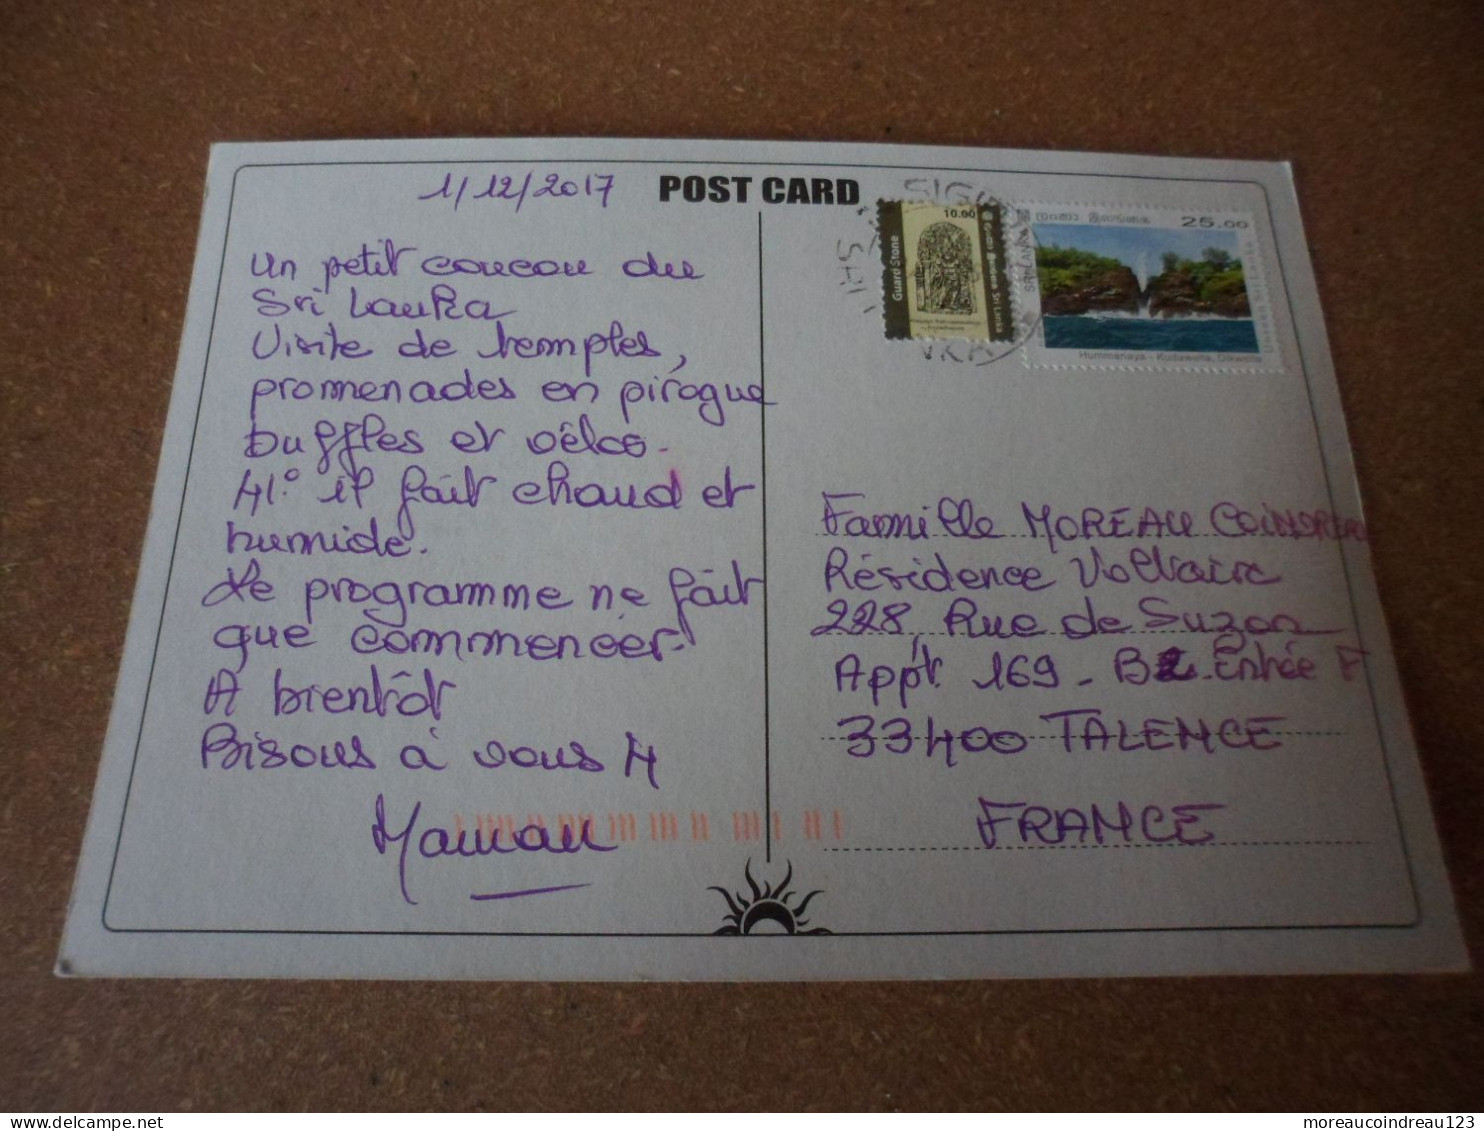 1/12/2017
POST CARD
Un petit coucou du
Sri Lanka
Visite de temples,
promenades en pirogue
buffles et vélos.
41° il fait chaud et
humide.
Le programme ne fait
que commencer.
A bientôt
Bisous à vous 4
Maman
10.00
Guard Stone
Sri Lanka
SRI LANKA
இலங்கை
25.00
Hummanaya - Kudawella, Dikwella
Famille MOREAU COINDREAU
Résidence Voltaire
228, Rue de Suzon
Appt. 169 - B2 - Entrée F
33400 TALENCE
FRANCE
delcampe.net
moreaucoindreau123